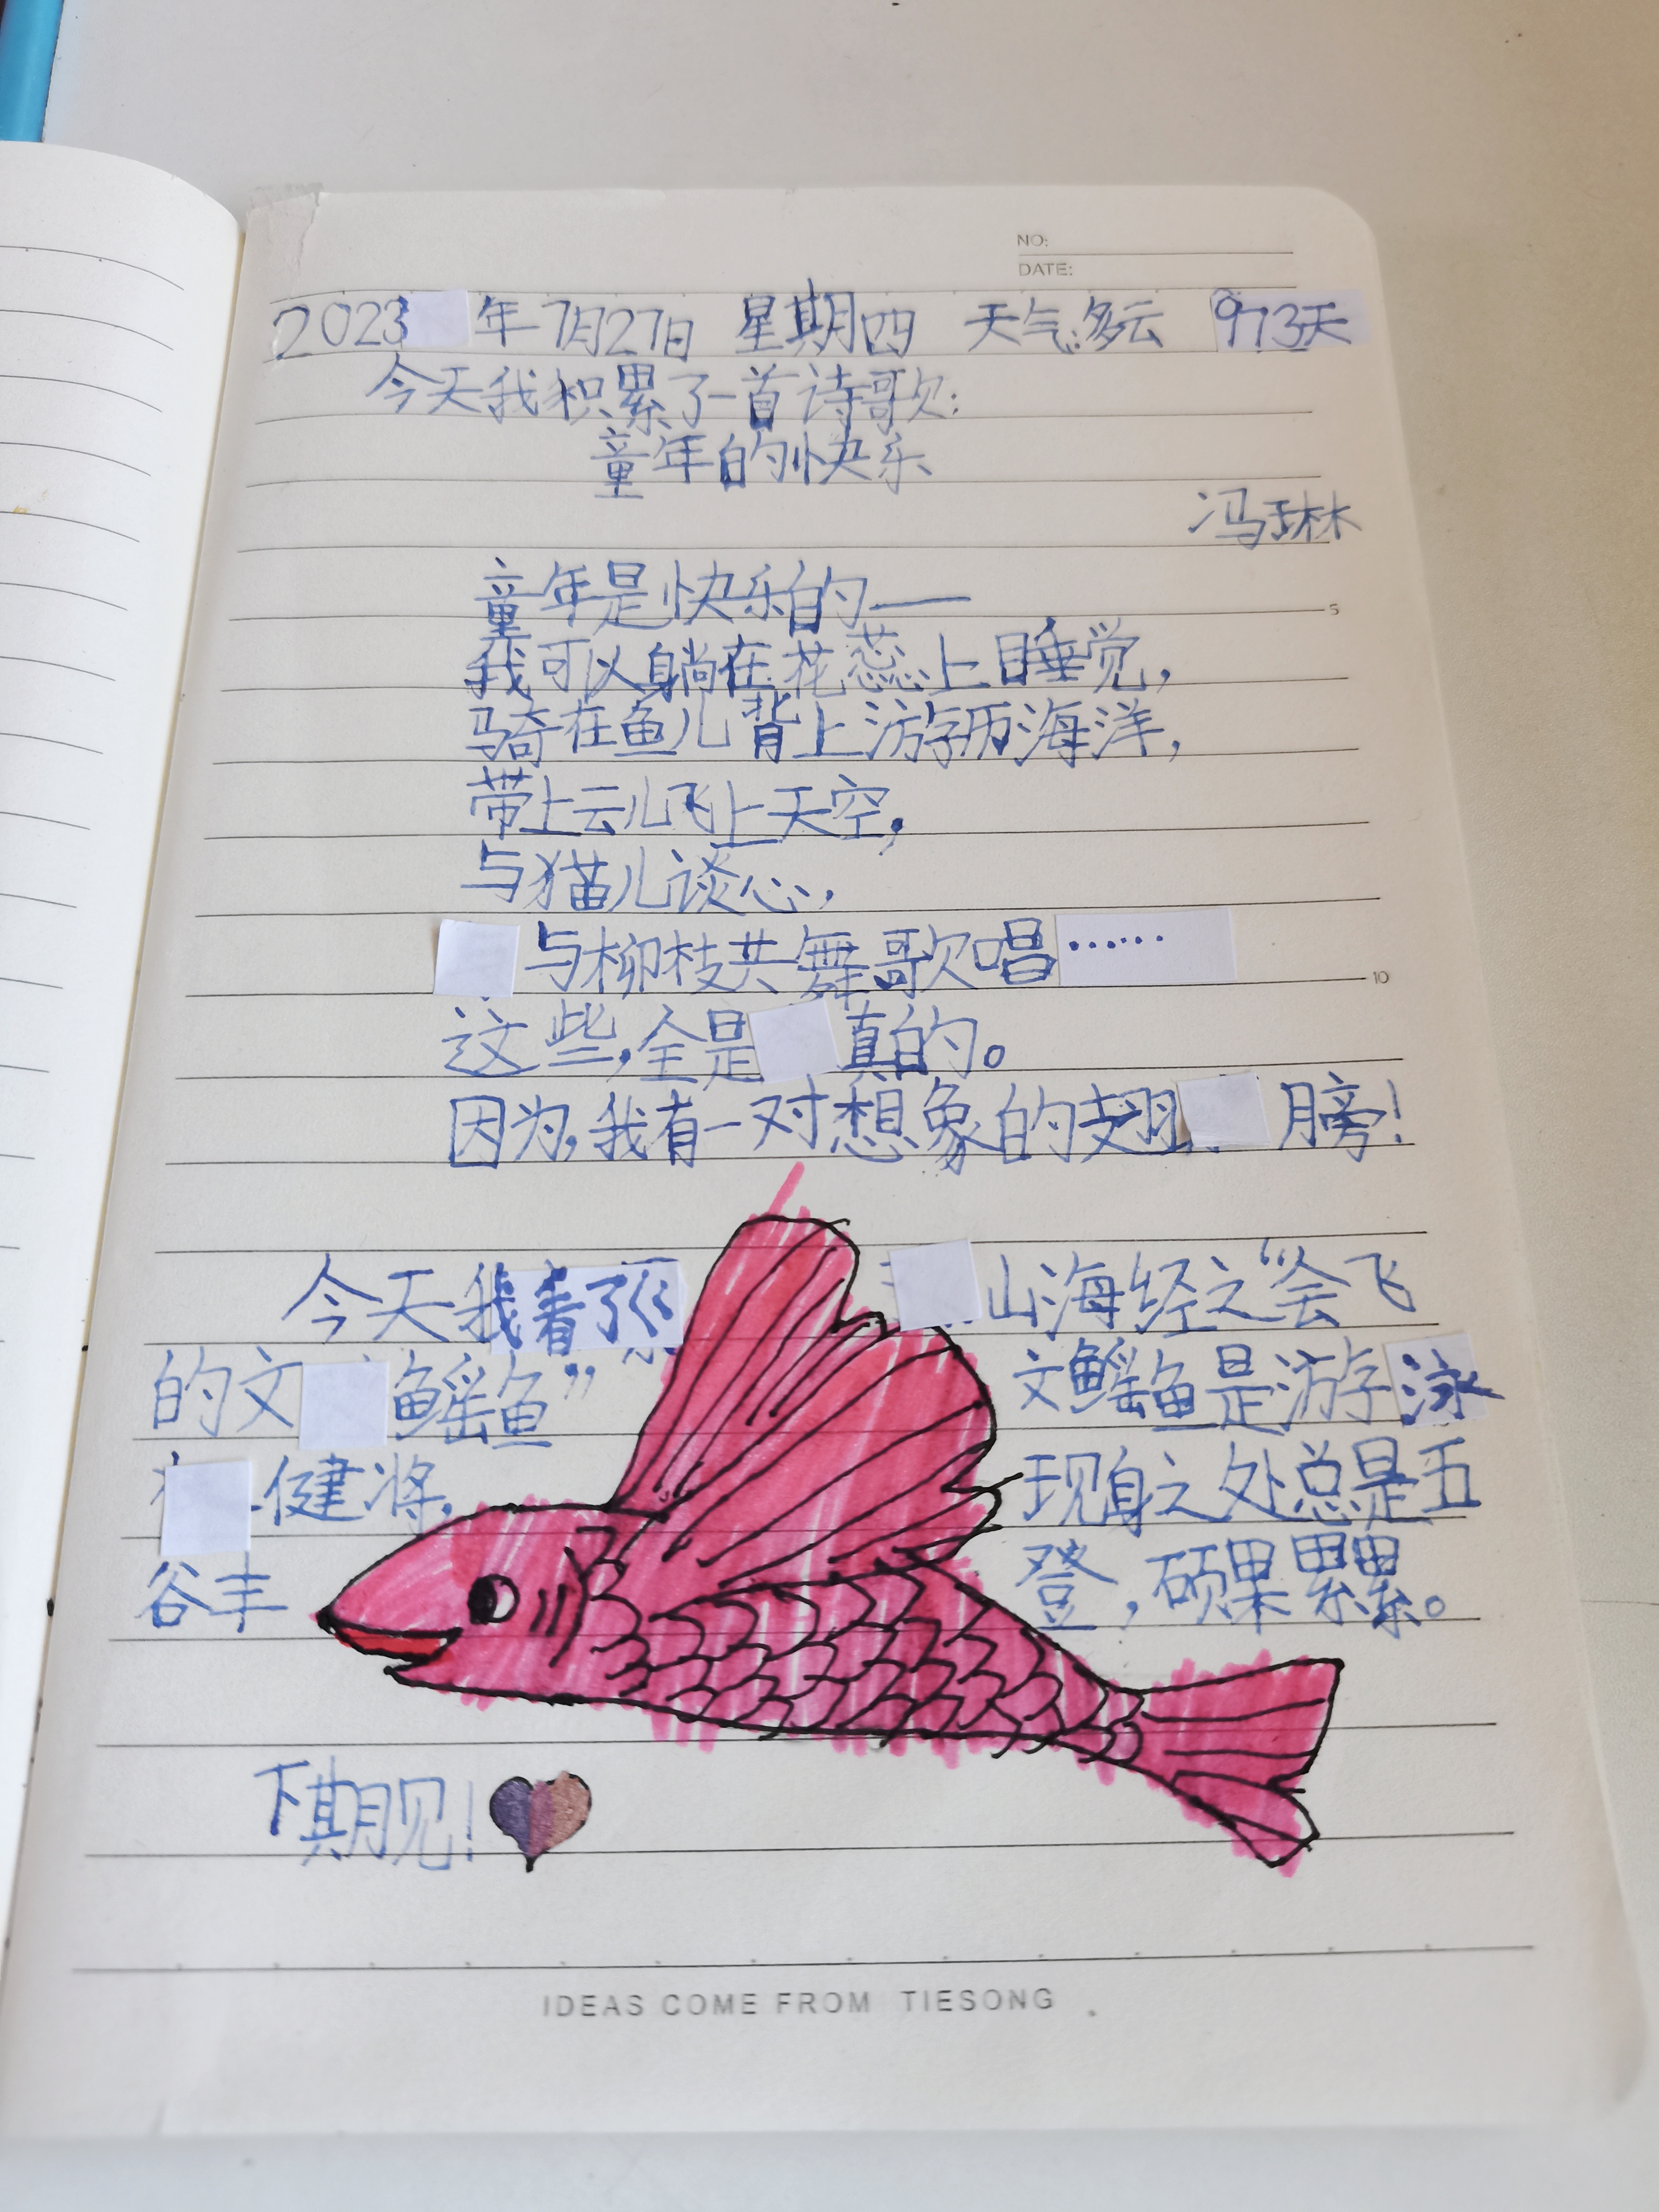 NO:
DATE:
2023年7月27日 星期四 天气:多云 973天
今天我积累了一首诗歌:
童年的快乐
冯琳
童年是快乐的——
我可以躺在花蕊上睡觉,
骑在鱼儿背上游历海洋,
带上云儿飞上天空,
与猫儿谈心,
与柳枝共舞歌唱……
这些,全是真的。
因为,我有一对想象的翅膀!
今天我看了 山海经之“会飞
的文鳐鱼” 文鳐鱼是游泳
健将, 现身之处总是五
谷丰 登,硕果累累。
下期见!
5
10
IDEAS COME FROM TIESONG